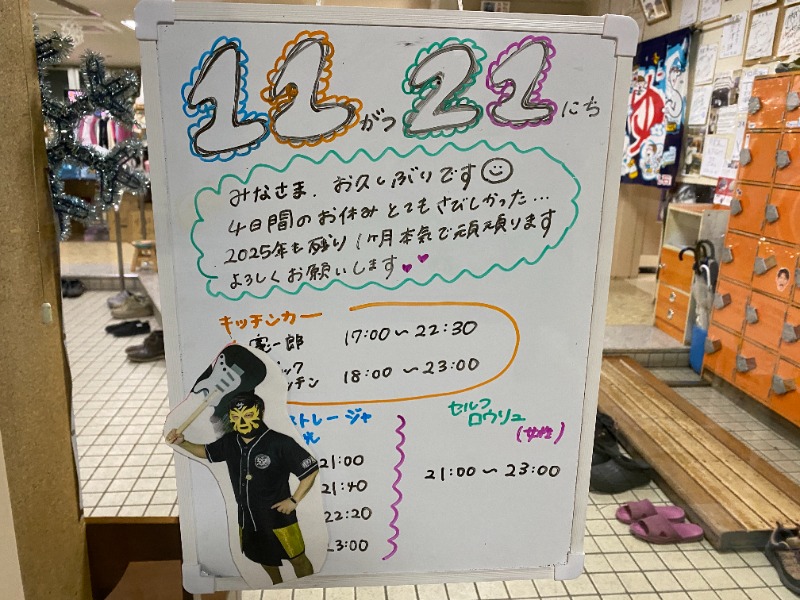 11がつ 21にち
みなさま、お久しぶりです
4日間のお休みとてもさびしかった...
2025年も残り1ヶ月本気で頑張ります
よろしくお願いします
キッチンカー
家一郎 17:00〜22:30
ック
チン 18:00〜23:00
ストレージャ
光
21:00
21:40
22:20
23:00
セルフ
ロウリュ
(女性)
21:00〜23:00
ゆ